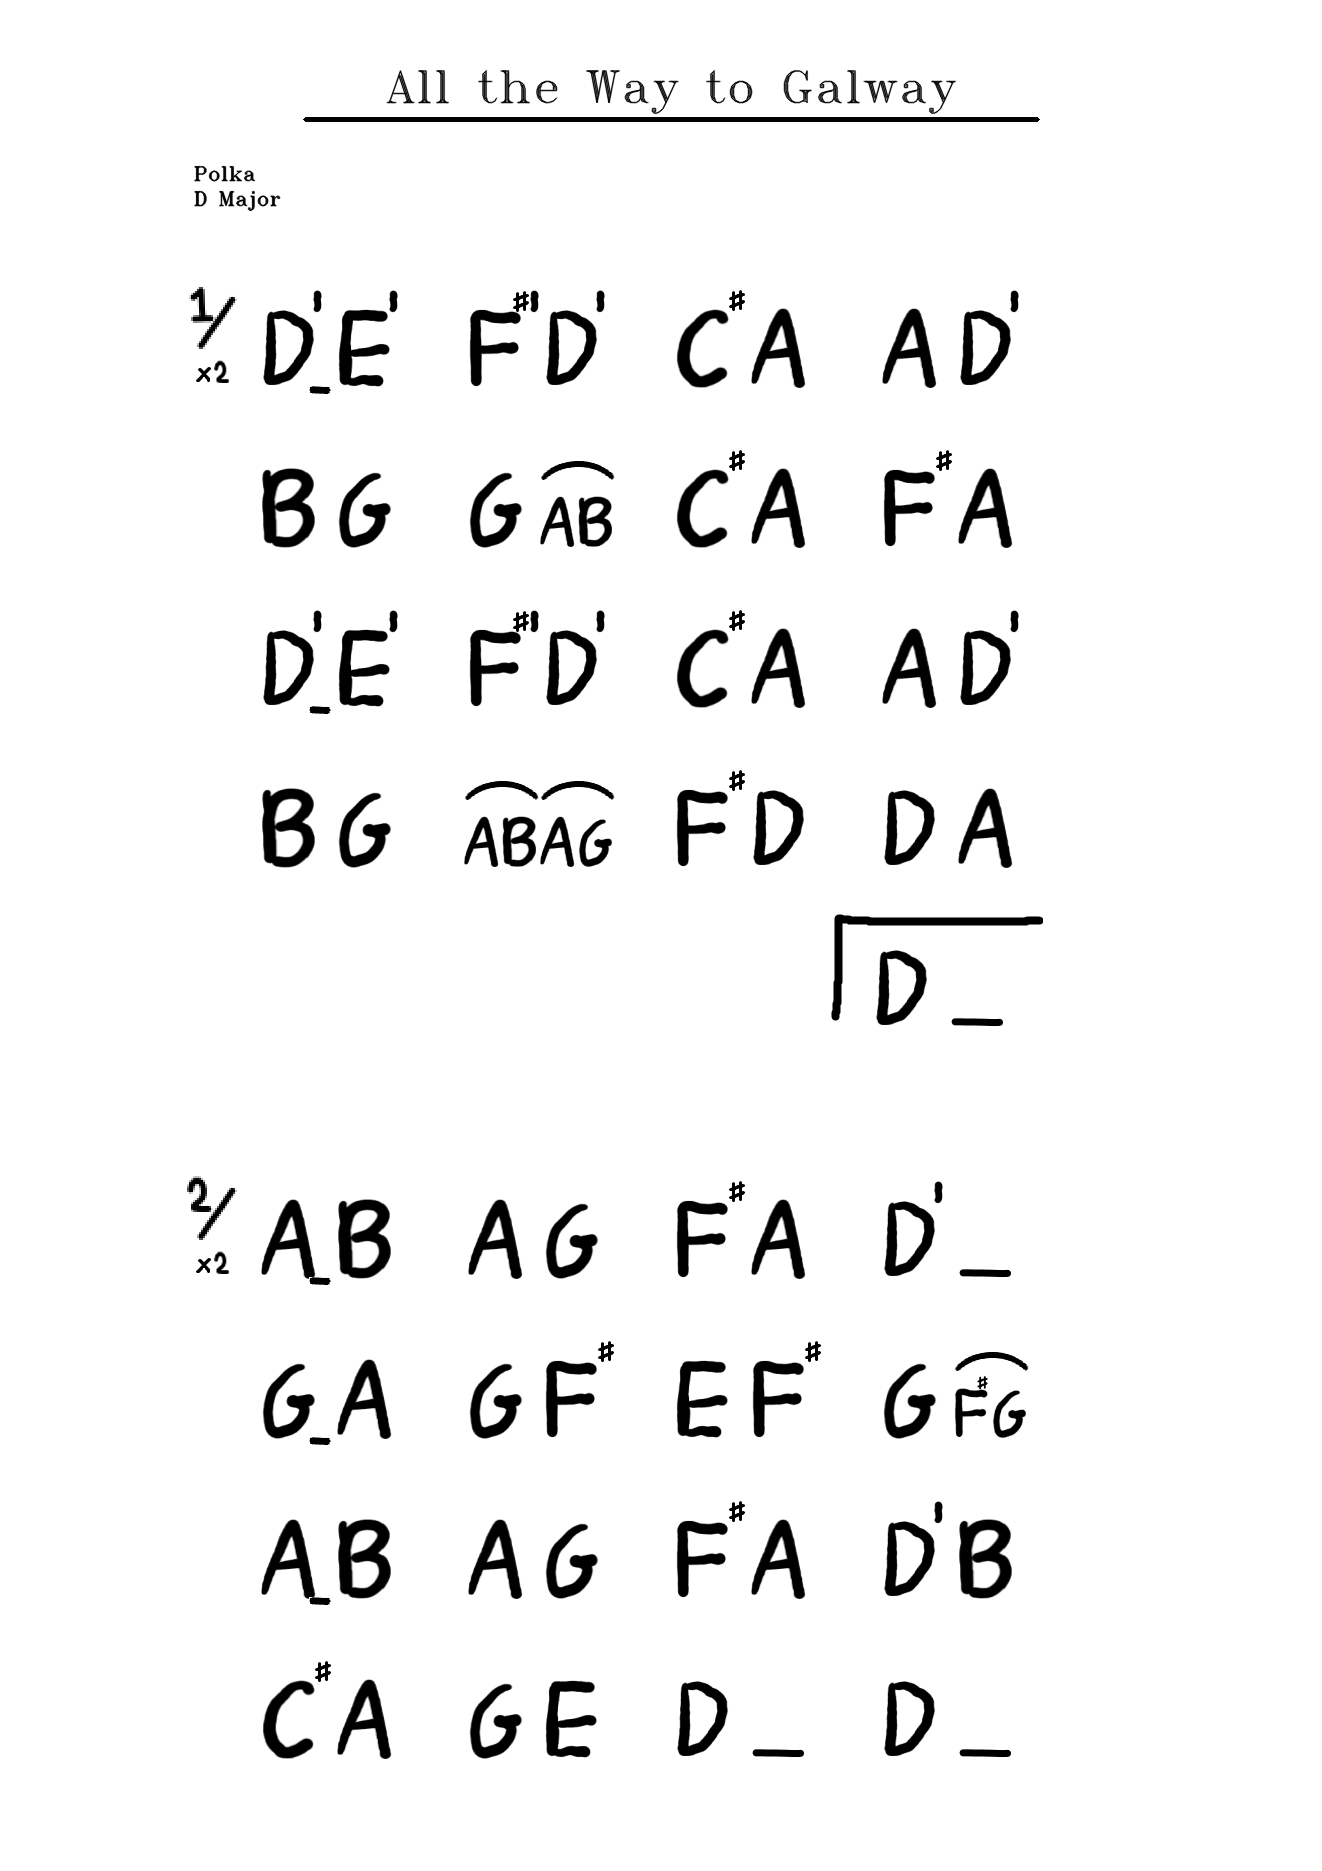 All the Way to Galway
Polka
D Major
1/ x2 D'_E' F#'D' C#A AD'
BG GAB C#A F#A
D'_E' F#'D' C#A AD'
BG ABAG F#D DA
D _
2/ x2 A_B AG F#A D'_
G_A GF# EF# GF#G
A_B AG F#A D'B
C#A GE D_ D_